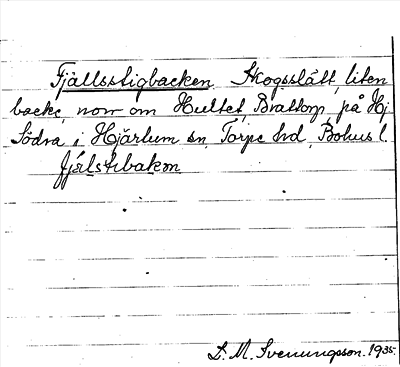 Fjällsstigbacken Skogsslätt, liten
backe, norr om Hultet, Brattorp, på Hj
Södra i Hjärtum sn Torpe hd, Bohus l.
fjälstibakɘn
D. M. Svenungsson. 1935.